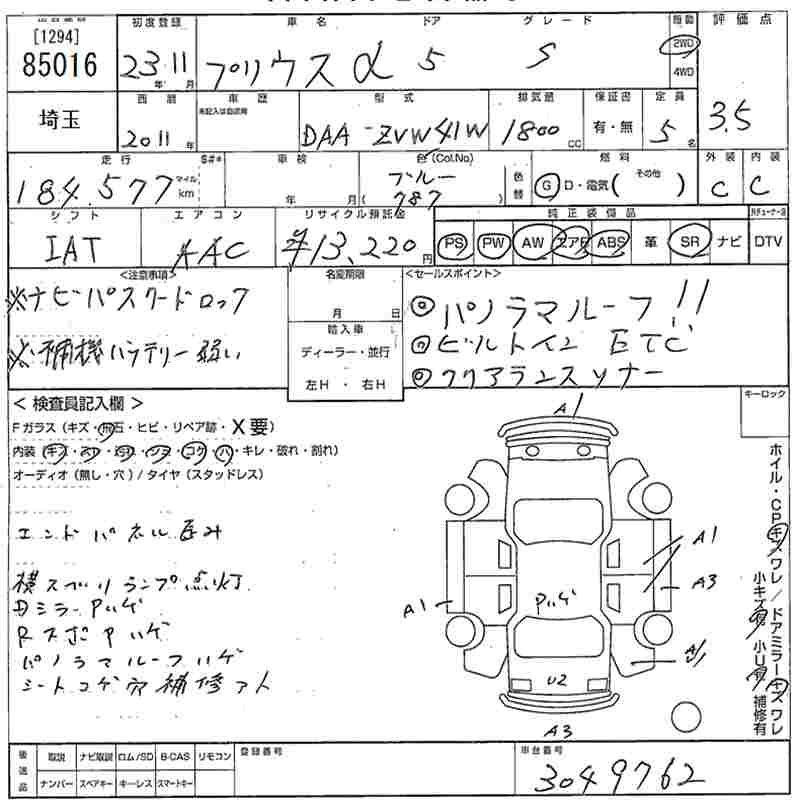 [1294]
85016
埼玉
初度登録
23 年 11 月
車名 ドア グレード
プリウスα 5 S
駆動
2WD
4WD
評価点
3.5
西暦
2011 年
車歴
未記入は自家用
型式
DAA-ZVW41W
排気量
1800 cc
保証書
有・無
定員
5 名
走行
184,577 マイル km
S#*
車検
年 月
色(Col.No)
ブルー
(787)
色替
燃料
G D・電気( その他 )
外装
C
内装
C
シフト
IAT
エアコン
AAC
リサイクル預託金
¥13,220 円
純正装備品
PS PW AW エアB ABS 革 SR ナビ
DTV
<注意事項>
※ナビパスワードロック
※補機バッテリー弱い
名変期限
月 日
輸入車
ディーラー・並行
左H・右H
<セールスポイント>
◎パノラマルーフ!!
◎ビルトイン ETC
◎クリアランスソナー
キーロック
<検査員記入欄>
Fガラス(キズ・飛石・ヒビ・リペア跡・X要)
内装(キズ・スレ・汚れ・シミ・コゲ・ハ・キレ・破れ・割れ)
オーディオ(無し・穴)/タイヤ(スタッドレス)
エンドパネル歪み
横スベリランプ点灯
DミラーPハゲ
RスポPハゲ
パノラマルーフハゲ
シートコゲ穴補修アト
A1
A1
A3
A1
Pハゲ
A1
U2
A3
ホイル・CPキズワレ/ドアミラーキズワレ
小キズ有 小U有 補修有
後送品
取説 ナビ取説 ロム/SD B-CAS リモコン
ナンバー スペアキー キーレス スマートキー
登録番号
車台番号
3049762